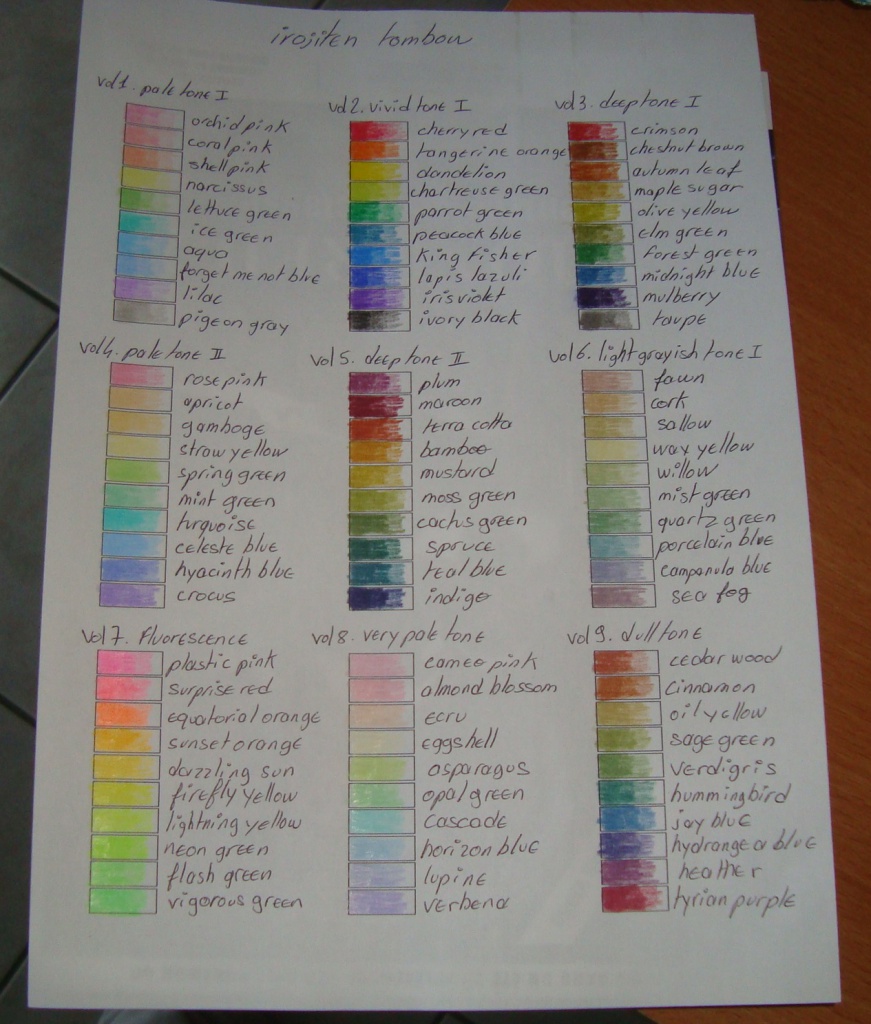 irojiten tombow
vol1. pale tone I
orchid pink
coral pink
shell pink
narcissus
lettuce green
ice green
aqua
forget me not blue
lilac
pigeon gray
vol2. vivid tone I
cherry red
tangerine orange
dandelion
chartreuse green
parrot green
peacock blue
king fisher
lapis lazuli
iris violet
ivory black
vol3. deep tone I
crimson
chestnut brown
autumn leaf
maple sugar
olive yellow
elm green
forest green
midnight blue
mulberry
taupe
vol4. pale tone II
rose pink
apricot
gamboge
straw yellow
spring green
mint green
turquoise
celeste blue
hyacinth blue
crocus
vol5. deep tone II
plum
maroon
terra cotta
bamboo
mustard
moss green
cactus green
spruce
teal blue
indigo
vol6. light grayish tone I
fawn
cork
sallow
wax yellow
willow
mist green
quartz green
porcelain blue
campanula blue
sea fog
vol7. Fluorescence
plastic pink
surprise red
equatorial orange
sunset orange
dazzling sun
firefly yellow
lightning yellow
neon green
flash green
vigorous green
vol8. very pale tone
cameo pink
almond blossom
ecru
eggshell
asparagus
opal green
cascade
horizon blue
lupine
verbena
vol9. dull tone
cedar wood
cinnamon
oil yellow
sage green
verdigris
hummingbird
jay blue
hydrangea blue
heather
tyrian purple